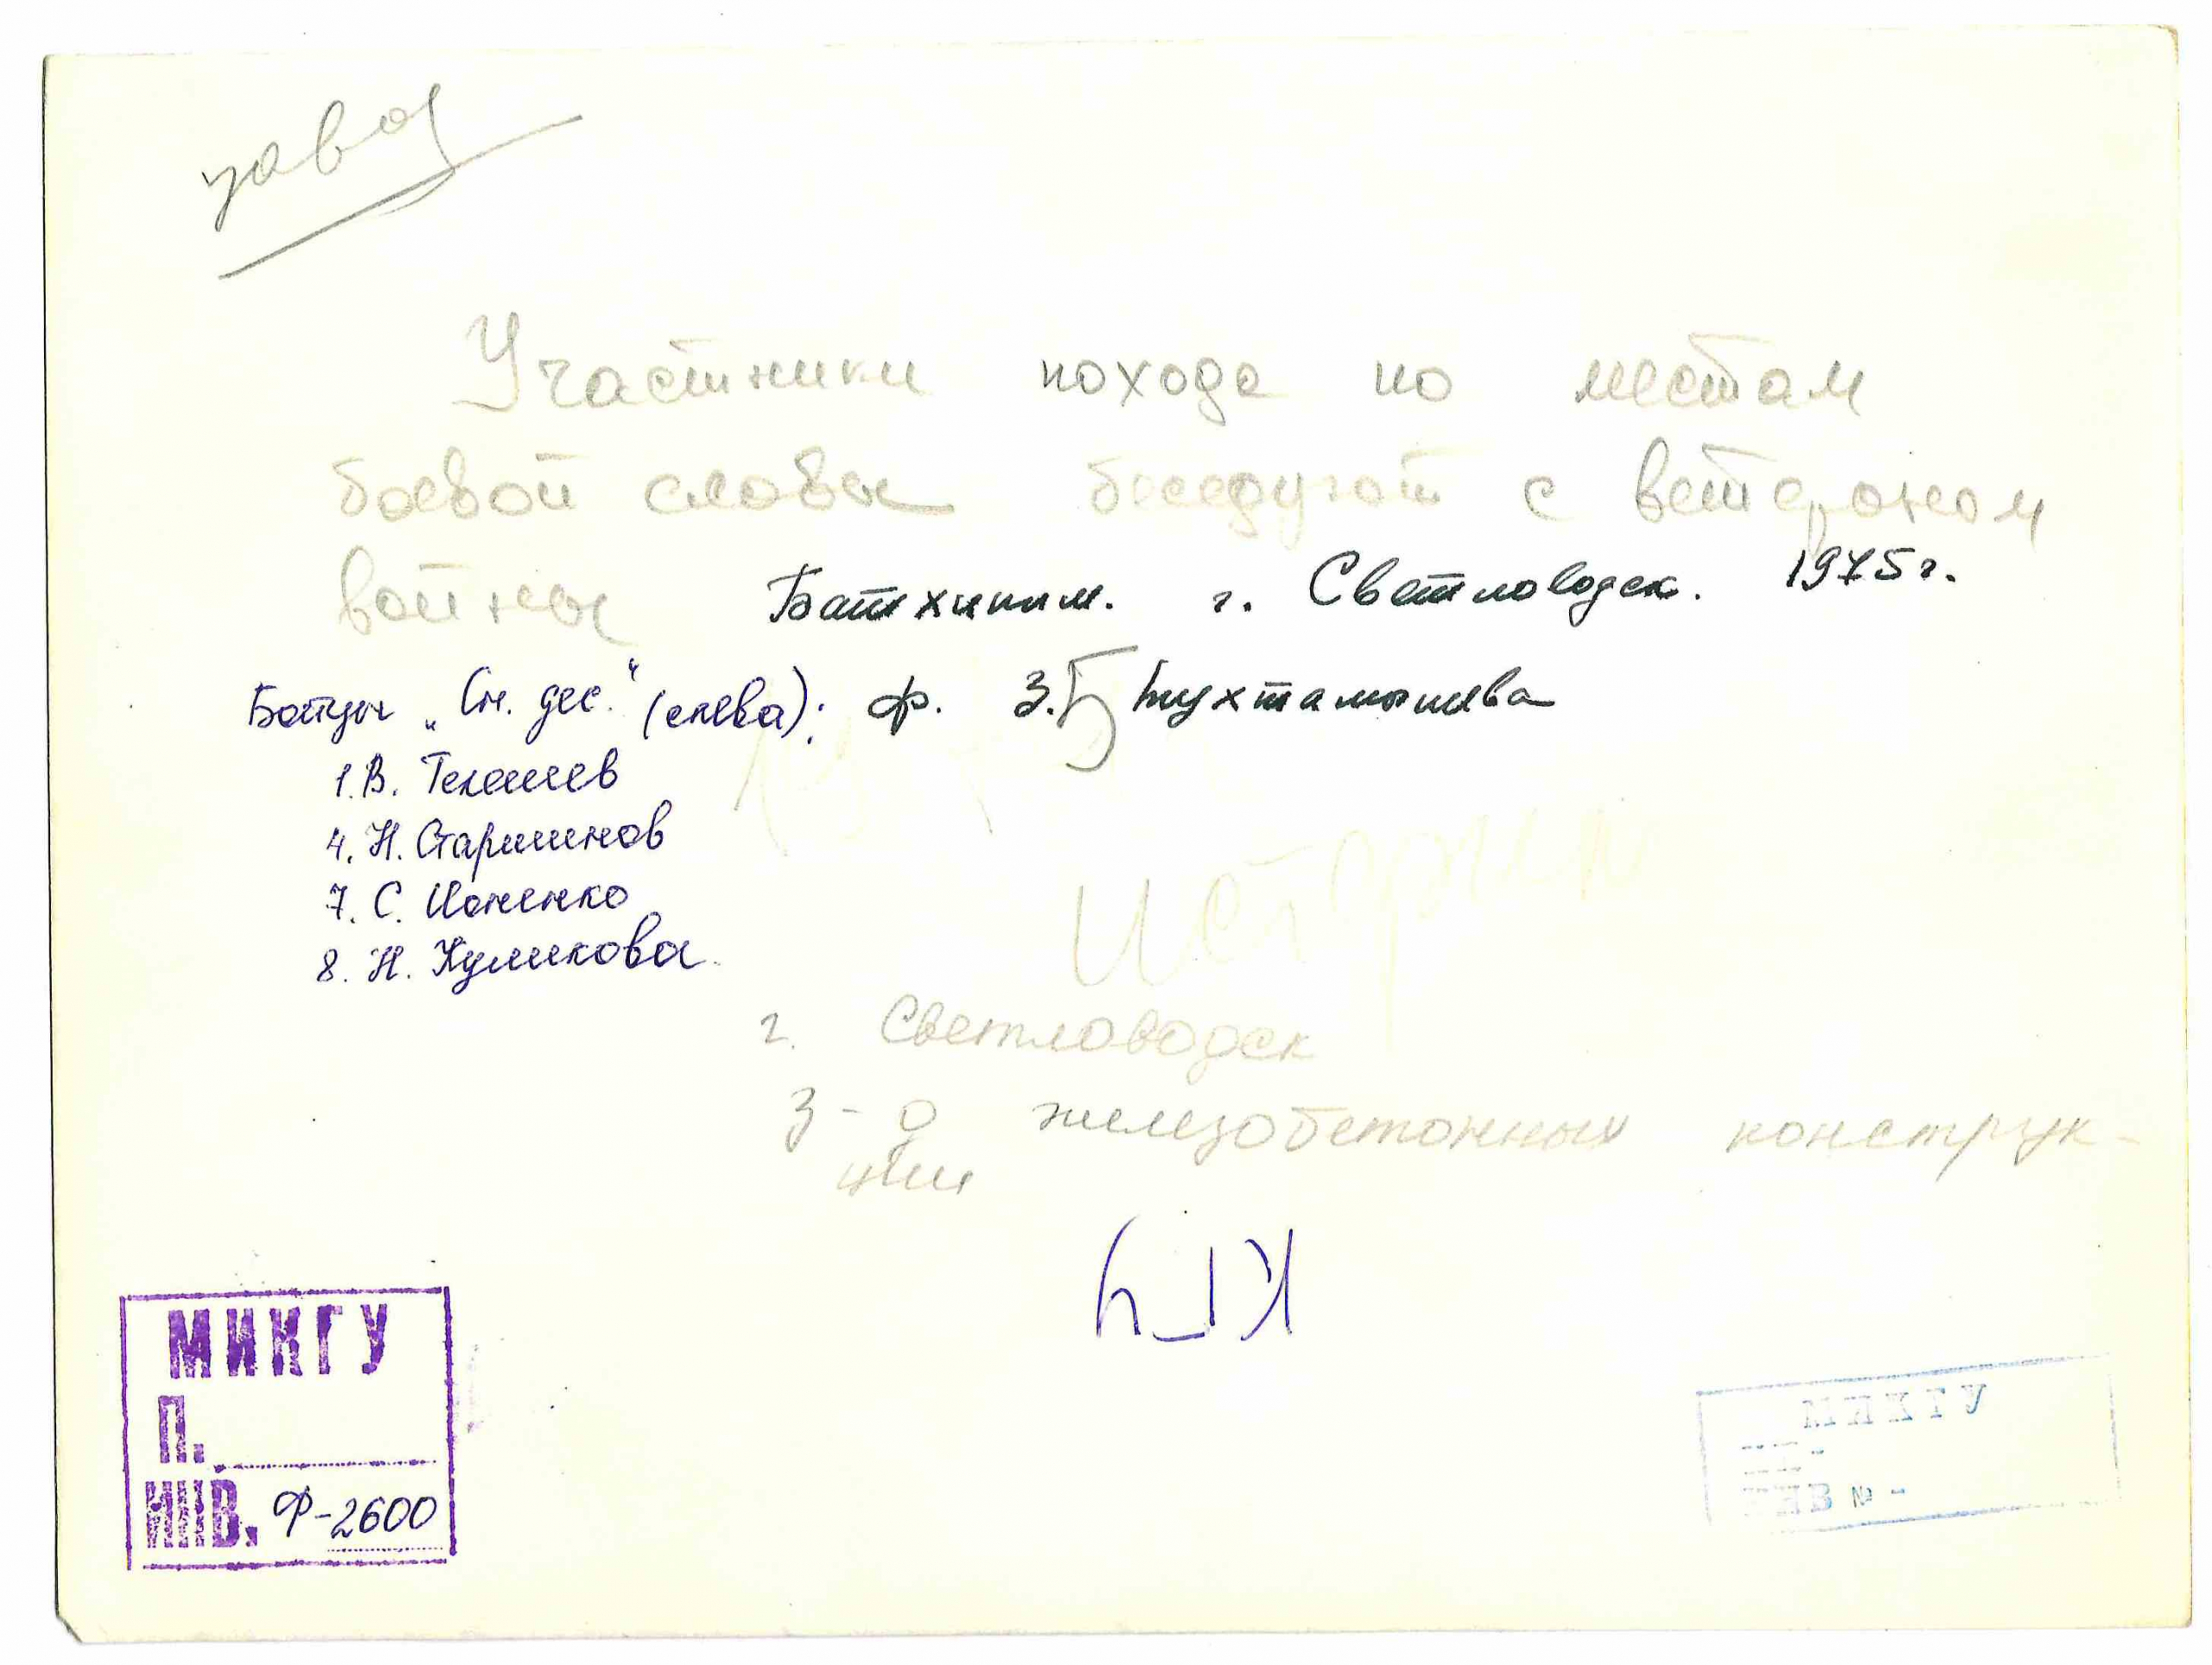 Участники похода по местам
боевой славы беседуют с ветераном
войны Батхиным. г. Светловодск. 1975 г.
Бойцы „Сн. дес." (слева): ф. З. Тухтамышева
1. В. Телешев
4. Н. Старшинов
7. С. Ионенко
8. Н. Куликова
г. Светловодск
з-д железобетонных конструк-
ции
МИКГУ
П.
ИНВ. Ф-2600
МИКГУ
П.
ИНВ № -